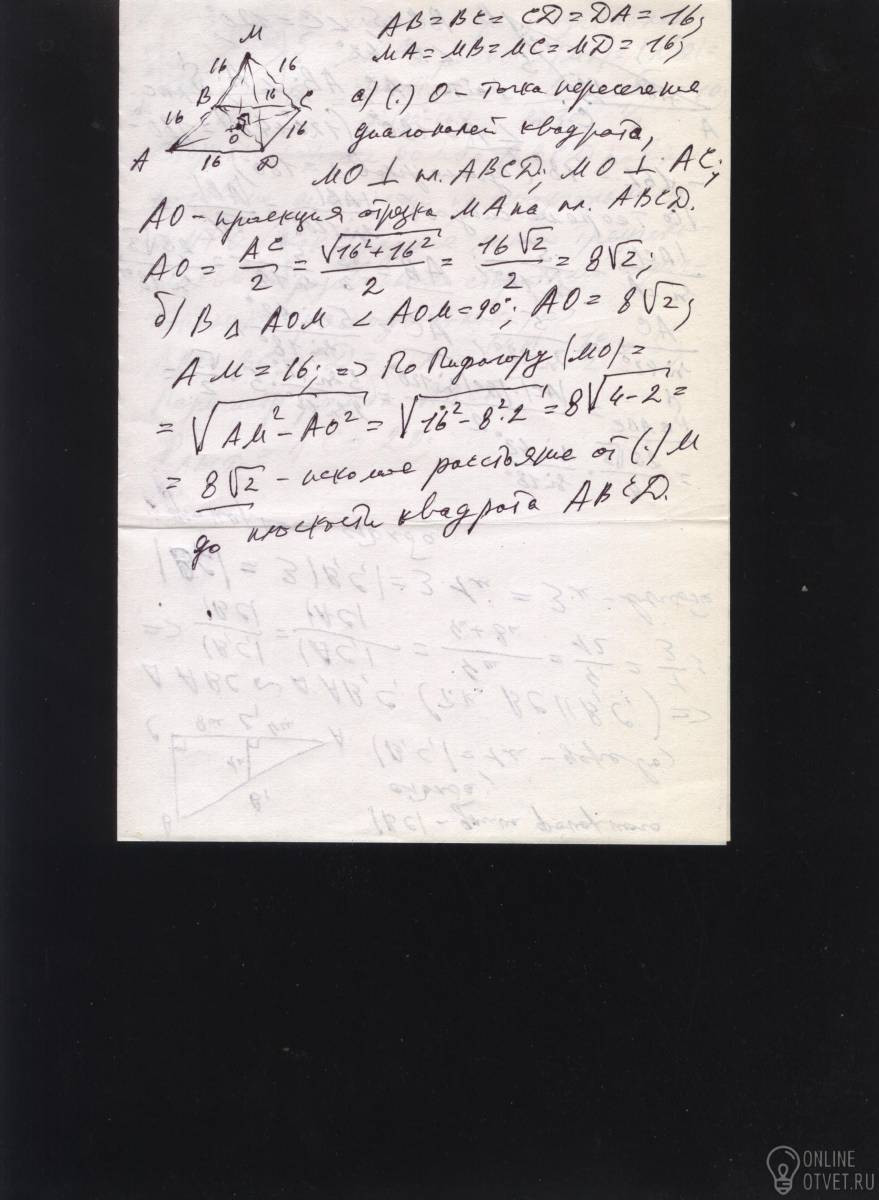 AB = BC = CD = DA = 16;
MA = MB = MC = MD = 16;
M
16 16
B 16 C
16 16
O
A 16 D
а) (.) O – точка пересечения
диагоналей квадрата,
MO ⊥ пл. ABCD; MO ⊥ AC;
AO – проекция отрезка MA на пл. ABCD.
AO = AC/2 = √(16² + 16²)/2 = 16√2/2 = 8√2;
б) В △ AOM ∠ AOM = 90°; AO = 8√2;
AM = 16; => По Пифагору |MO| =
= √(AM² – AO²) = √(16² – 8²·2) = 8√(4 – 2) =
= 8√2 – искомое расстояние от (.) M
до плоскости квадрата ABCD.
ONLINE
OTVET.RU